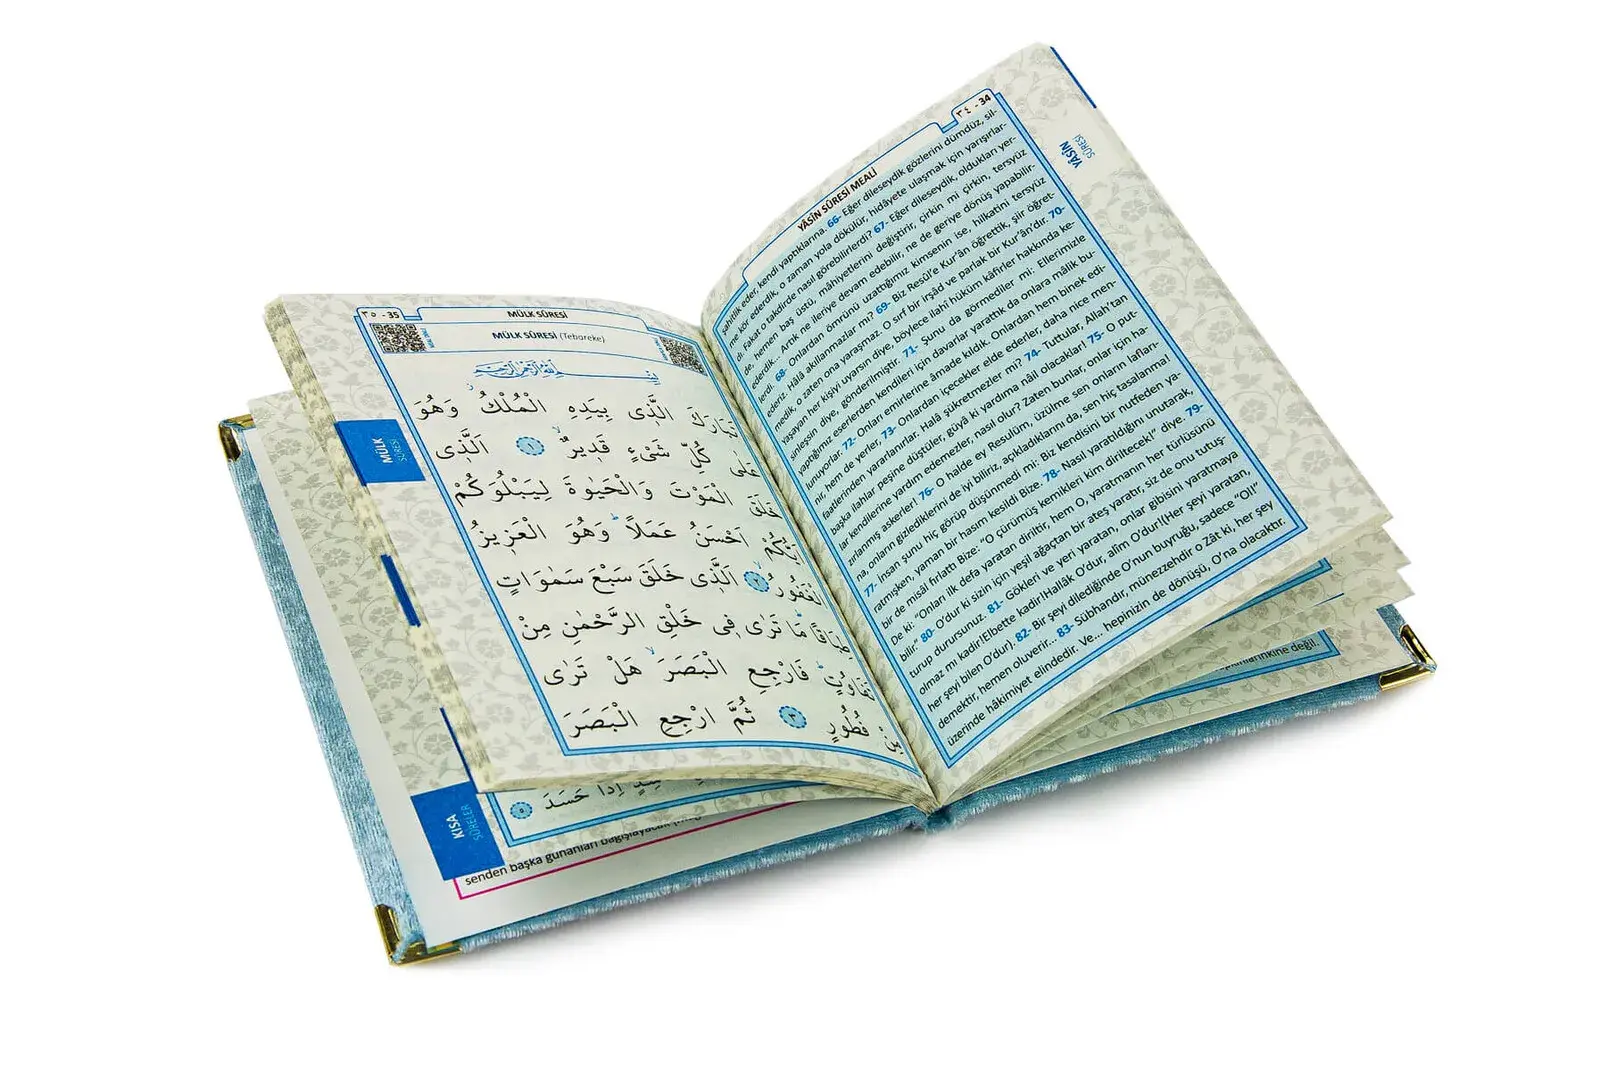 ٣٤ - 34
YÂSÎN SÛRESİ MEALİ
YÂSÎN
SÛRESİ
şahitlik eder, kendi yaptıklarına. 66- Eğer dileseydik gözlerini dümdüz, sil-
me kör ederdik, o zaman yola dökülür, hidâyete ulaşmak için yarışırlar-
dı. Fakat o takdirde nasıl görebilirlerdi? 67- Eğer dileseydik, oldukları yer-
de, hemen baş üstü, mâhiyetlerini değiştirir, çirkin mi çirkin, tersyüz
ederdik... Artık ne ileriye devam edebilir, ne de geriye dönüş yapabilir-
lerdi. 68- Onlardan ömrünü uzattığımız kimsenin ise, hilkatini tersyüz
ederiz. Hâlâ akıllanmazlar mı? 69- Biz Resûl'e Kur'ân öğrettik, şiir öğret-
medik, o zaten ona yaraşmaz. O sırf bir irşâd ve parlak bir Kur'ân'dır. 70-
yaşayan her kişiyi uyarsın diye, böylece ilahî hüküm kâfirler hakkında ke-
sinleşsin diye, gönderilmiştir. 71- Şunu da görmediler mi: Ellerimizle
yaptığımız eserlerden kendileri için davarlar yarattık da onlara mâlik bu-
lunuyorlar. 72- Onları emirlerine âmade kıldık. Onlardan hem binek edi-
nir, hem de yerler, 73- Onlardan içecekler elde ederler, daha nice men-
faatlerinden yararlanırlar. Halâ şükretmezler mi? 74- Tuttular, Allah'tan
başka ilahlar peşine düştüler, güyâ ki yardıma nâil olacaklar! 75- O put-
lar kendilerine yardım edemezler, nasıl olur? Zaten bunlar, onlar için ha-
zırlanmış askerler! 76- O halde ey Resulüm, üzülme sen onların lafları-
na, onların gizlediklerini de iyi biliriz, açıkladıklarını da, sen hiç tasalanma!
77- İnsan şunu hiç görüp düşünmedi mi: Biz kendisini bir nutfeden ya-
ratmışken, yaman bir hasım kesildi Bize. 78- Nasıl yaratıldığını unutarak,
bir de misâl fırlattı Bize: "O çürümüş kemikleri kim diriltecek!" diye. 79-
De ki: "Onları ilk defa yaratan diriltir, hem O, yaratmanın her türlüsünü
bilir." 80- O'dur ki sizin için yeşil ağaçtan bir ateş yaratır, siz de onu tutuş-
turup durursunuz. 81- Gökleri ve yeri yaratan, onlar gibisini yaratmaya
olmaz mı kadir!Elbette kadir!Hallâk O'dur, alîm O'dur!(Her şeyi yaratan,
her şeyi bilen O'dur). 82- Bir şeyi dilediğinde O'nun buyruğu, sadece "Ol!"
demektir, hemen oluverir... 83- Sübhandır, münezzehdir o Zât ki, her şey
üzerinde hâkimiyet elindedir. Ve... hepinizin de dönüşü, O'na olacaktır.
٣٥ - 35
MÜLK SÛRESİ
MÜLK SÛRESİ (Tebareke)
بِسْمِ اللّٰهِ الرَّحْمٰنِ الرَّحِيمِ
تَبَارَكَ الَّذٖى بِيَدِهِ الْمُلْكُ وَهُوَ
عَلٰى كُلِّ شَىْءٍ قَدٖيرٌ ١ اَلَّذٖى
خَلَقَ الْمَوْتَ وَالْحَيٰوةَ لِيَبْلُوَكُمْ
اَيُّكُمْ اَحْسَنُ عَمَلًا وَهُوَ الْعَزٖيزُ
الْغَفُورُ ٢ اَلَّذٖى خَلَقَ سَبْعَ سَمٰوَاتٍ
طِبَاقًا مَا تَرٰى فٖى خَلْقِ الرَّحْمٰنِ مِنْ
تَفَاوُتٍ فَارْجِعِ الْبَصَرَ هَلْ تَرٰى
مِنْ فُطُورٍ ٣ ثُمَّ ارْجِعِ الْبَصَرَ
MÜLK
SÛRESİ
اِذَا حَسَدَ ٥
KISA
SÛRELER
senden başka günahları bağışlayacak
değil.